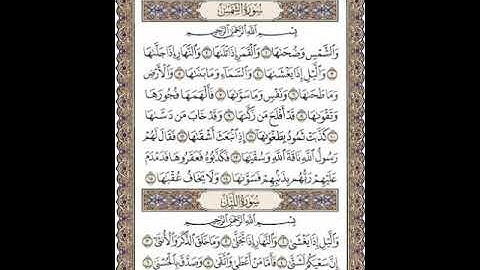 سُورَةُ الشَّمْسِ
بِسْمِ اللَّهِ الرَّحْمَٰنِ الرَّحِيمِ
وَالشَّمْسِ وَضُحَىٰهَا ١ وَالْقَمَرِ إِذَا تَلَىٰهَا ٢ وَالنَّهَارِ إِذَا جَلَّىٰهَا
٣ وَالَّيْلِ إِذَا يَغْشَىٰهَا ٤ وَالسَّمَاءِ وَمَا بَنَىٰهَا ٥ وَالْأَرْضِ
وَمَا طَحَىٰهَا ٦ وَنَفْسٍ وَمَا سَوَّىٰهَا ٧ فَأَلْهَمَهَا فُجُورَهَا
وَتَقْوَىٰهَا ٨ قَدْ أَفْلَحَ مَن زَكَّىٰهَا ٩ وَقَدْ خَابَ مَن دَسَّىٰهَا
١٠ كَذَّبَتْ ثَمُودُ بِطَغْوَىٰهَا ١١ إِذِ انبَعَثَ أَشْقَىٰهَا ١٢ فَقَالَ لَهُمْ
رَسُولُ اللَّهِ نَاقَةَ اللَّهِ وَسُقْيَٰهَا ١٣ فَكَذَّبُوهُ فَعَقَرُوهَا فَدَمْدَمَ
عَلَيْهِمْ رَبُّهُم بِذَنبِهِمْ فَسَوَّىٰهَا ١٤ وَلَا يَخَافُ عُقْبَٰهَا ١٥
سُورَةُ اللَّيْلِ
بِسْمِ اللَّهِ الرَّحْمَٰنِ الرَّحِيمِ
وَالَّيْلِ إِذَا يَغْشَىٰ ١ وَالنَّهَارِ إِذَا تَجَلَّىٰ ٢ وَمَا خَلَقَ الذَّكَرَ وَالْأُنثَىٰ ٣
إِنَّ سَعْيَكُمْ لَشَتَّىٰ ٤ فَأَمَّا مَنْ أَعْطَىٰ وَاتَّقَىٰ ٥ وَصَدَّقَ بِالْحُسْنَىٰ ٦